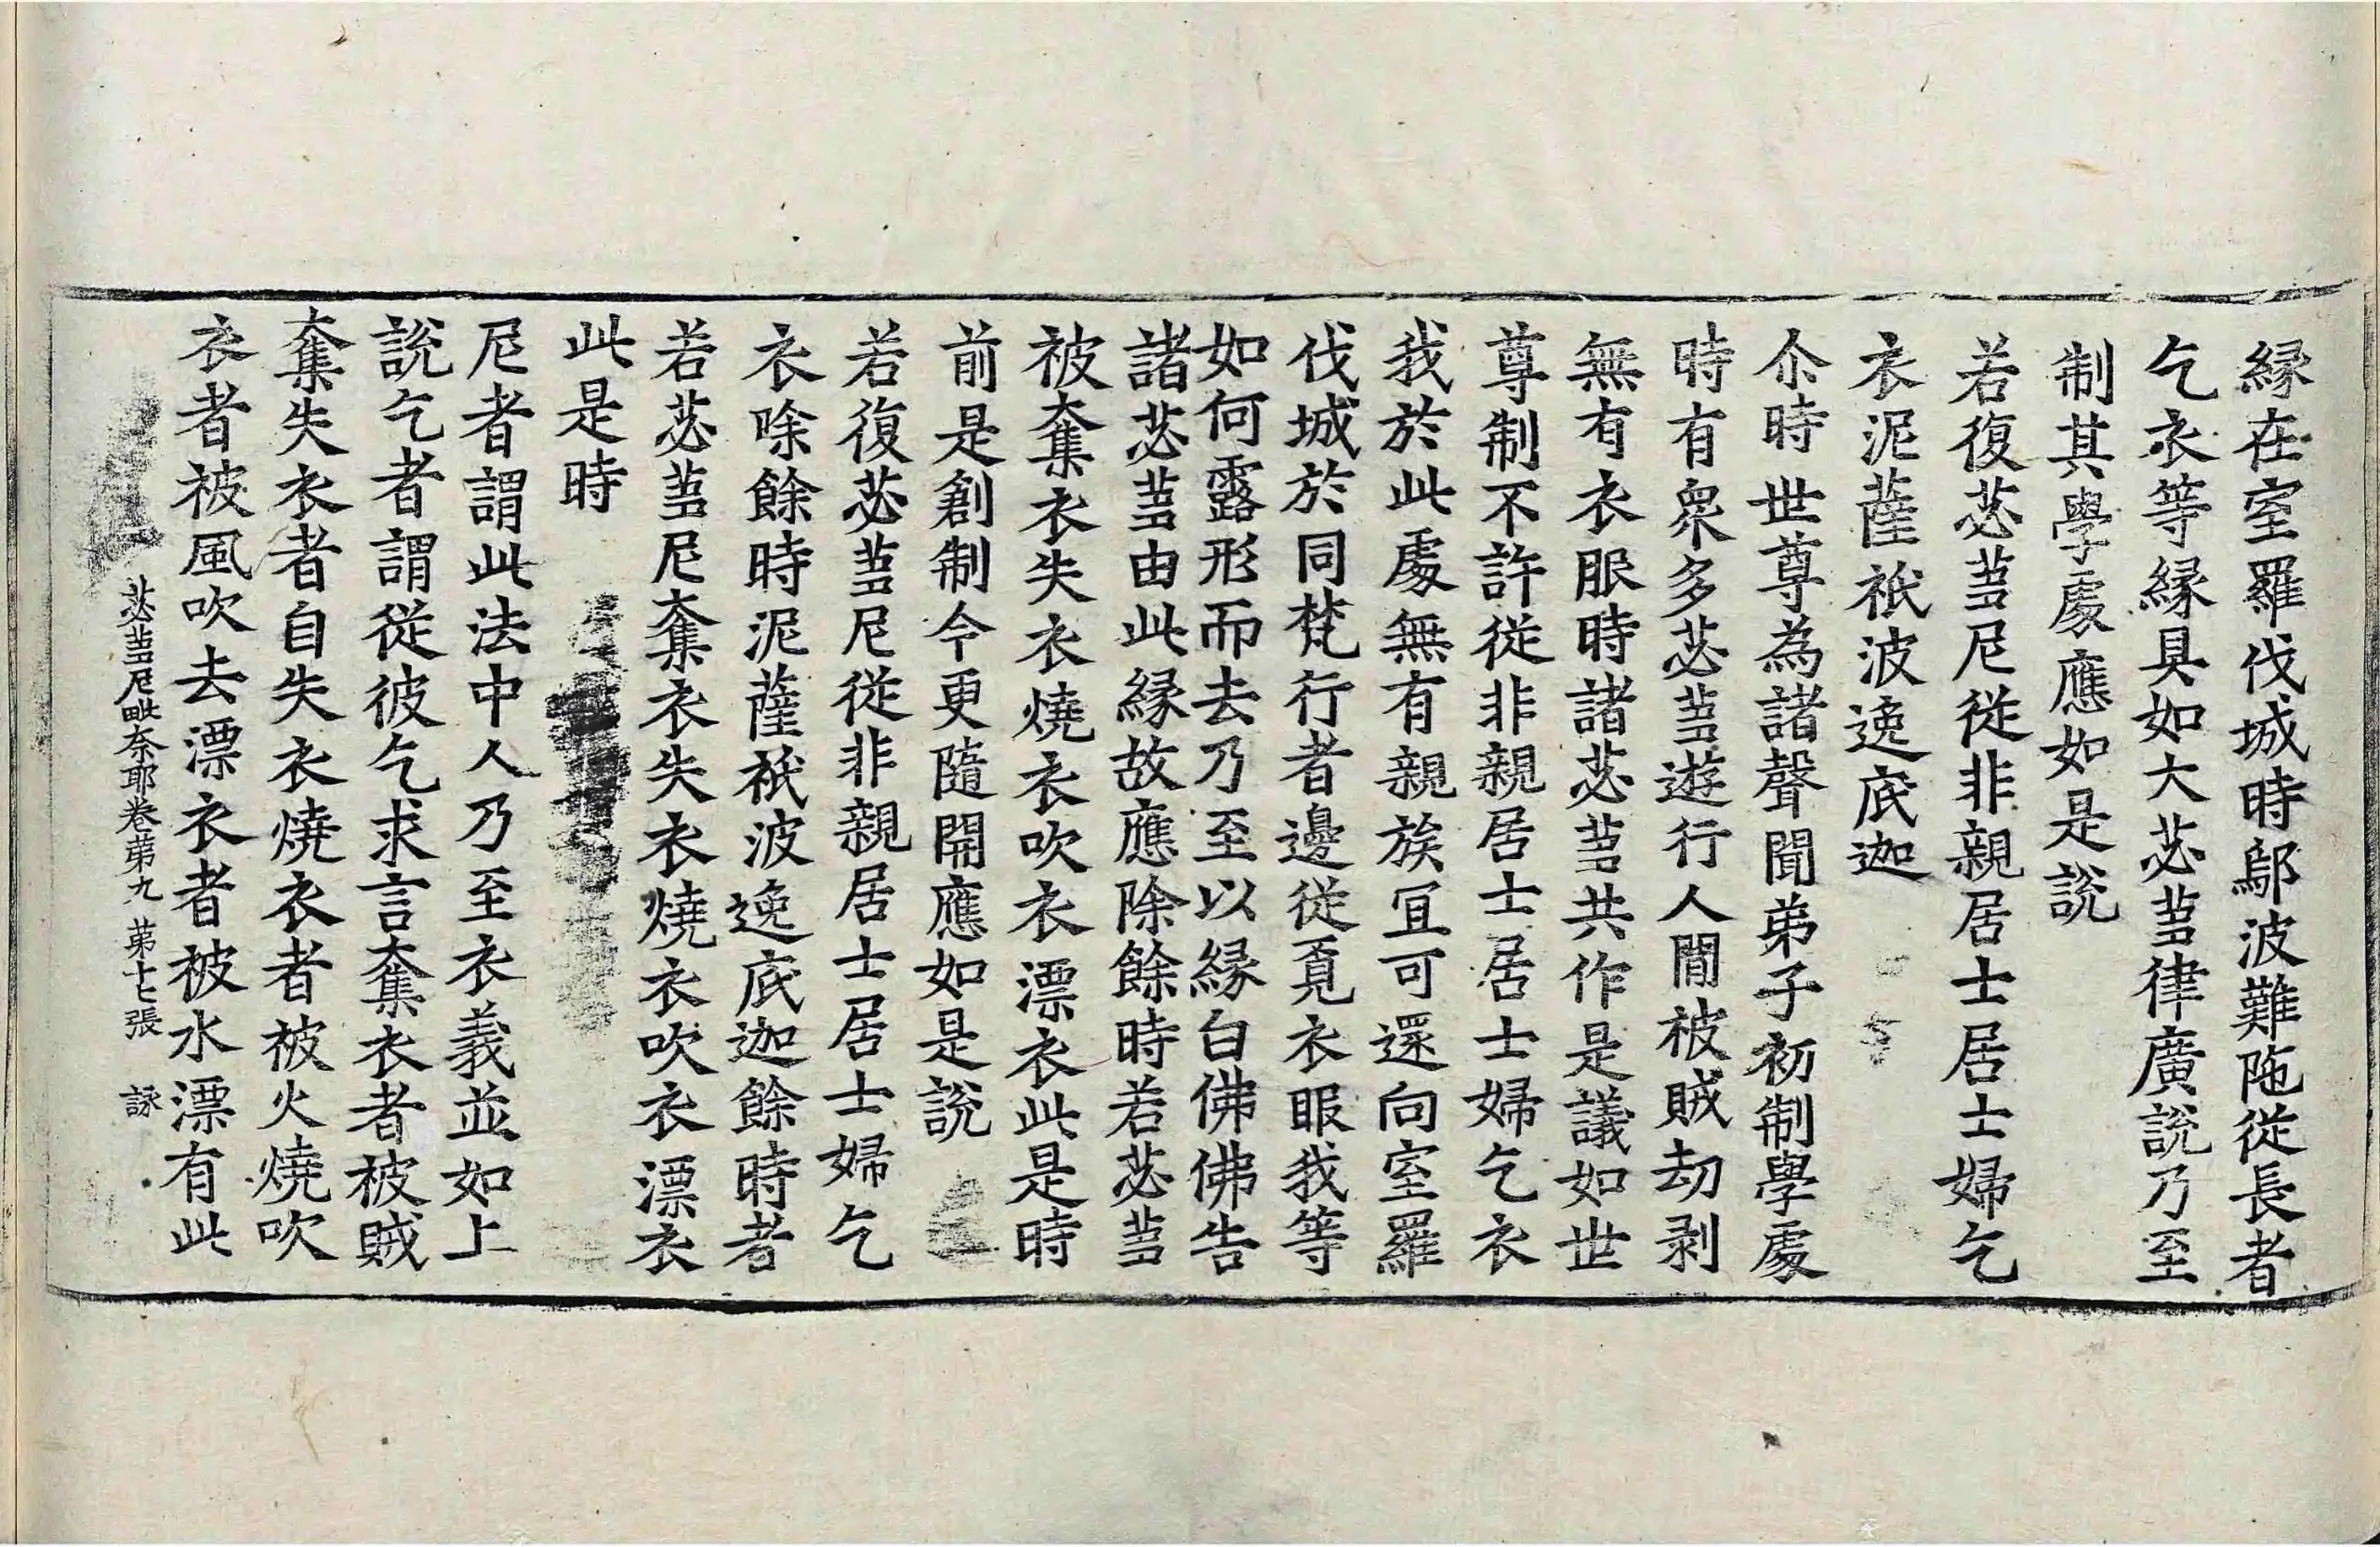 縁在室羅伐城時鄔波難陁従長者
乞衣等縁具如大苾蒭律廣說乃至
制其學處應如是說
若復苾蒭尼従非親居士居士婦乞
衣泥薩祇波逸底迦
尒時世尊為諸聲聞弟子初制學處
時有衆多苾蒭遊行人間被賊劫剥
無有衣服時諸苾蒭共作是議如世
尊制不許従非親居士居士婦乞衣
我於此處無有親族冝可還向室羅
伐城於同梵行者邊従覔衣服我等
如何露形而去乃至以縁白佛佛告
諸苾蒭由此縁故應除餘時若苾蒭
被奪衣失衣燒衣吹衣漂衣此是時
前是創制今更隨開應如是說
若復苾蒭尼従非親居士居士婦乞
衣除餘時泥薩祇波逸底迦餘時者
若苾蒭尼奪衣失衣燒衣吹衣漂衣
此是時
尼者謂此法中人乃至衣義並如上
說乞者謂従彼乞求言奪衣者被賊
奪失衣者自失衣燒衣者被火燒吹
衣者被風吹去漂衣者被水漂有此
苾蒭尼毗奈耶卷苐九 苐十七張 詠